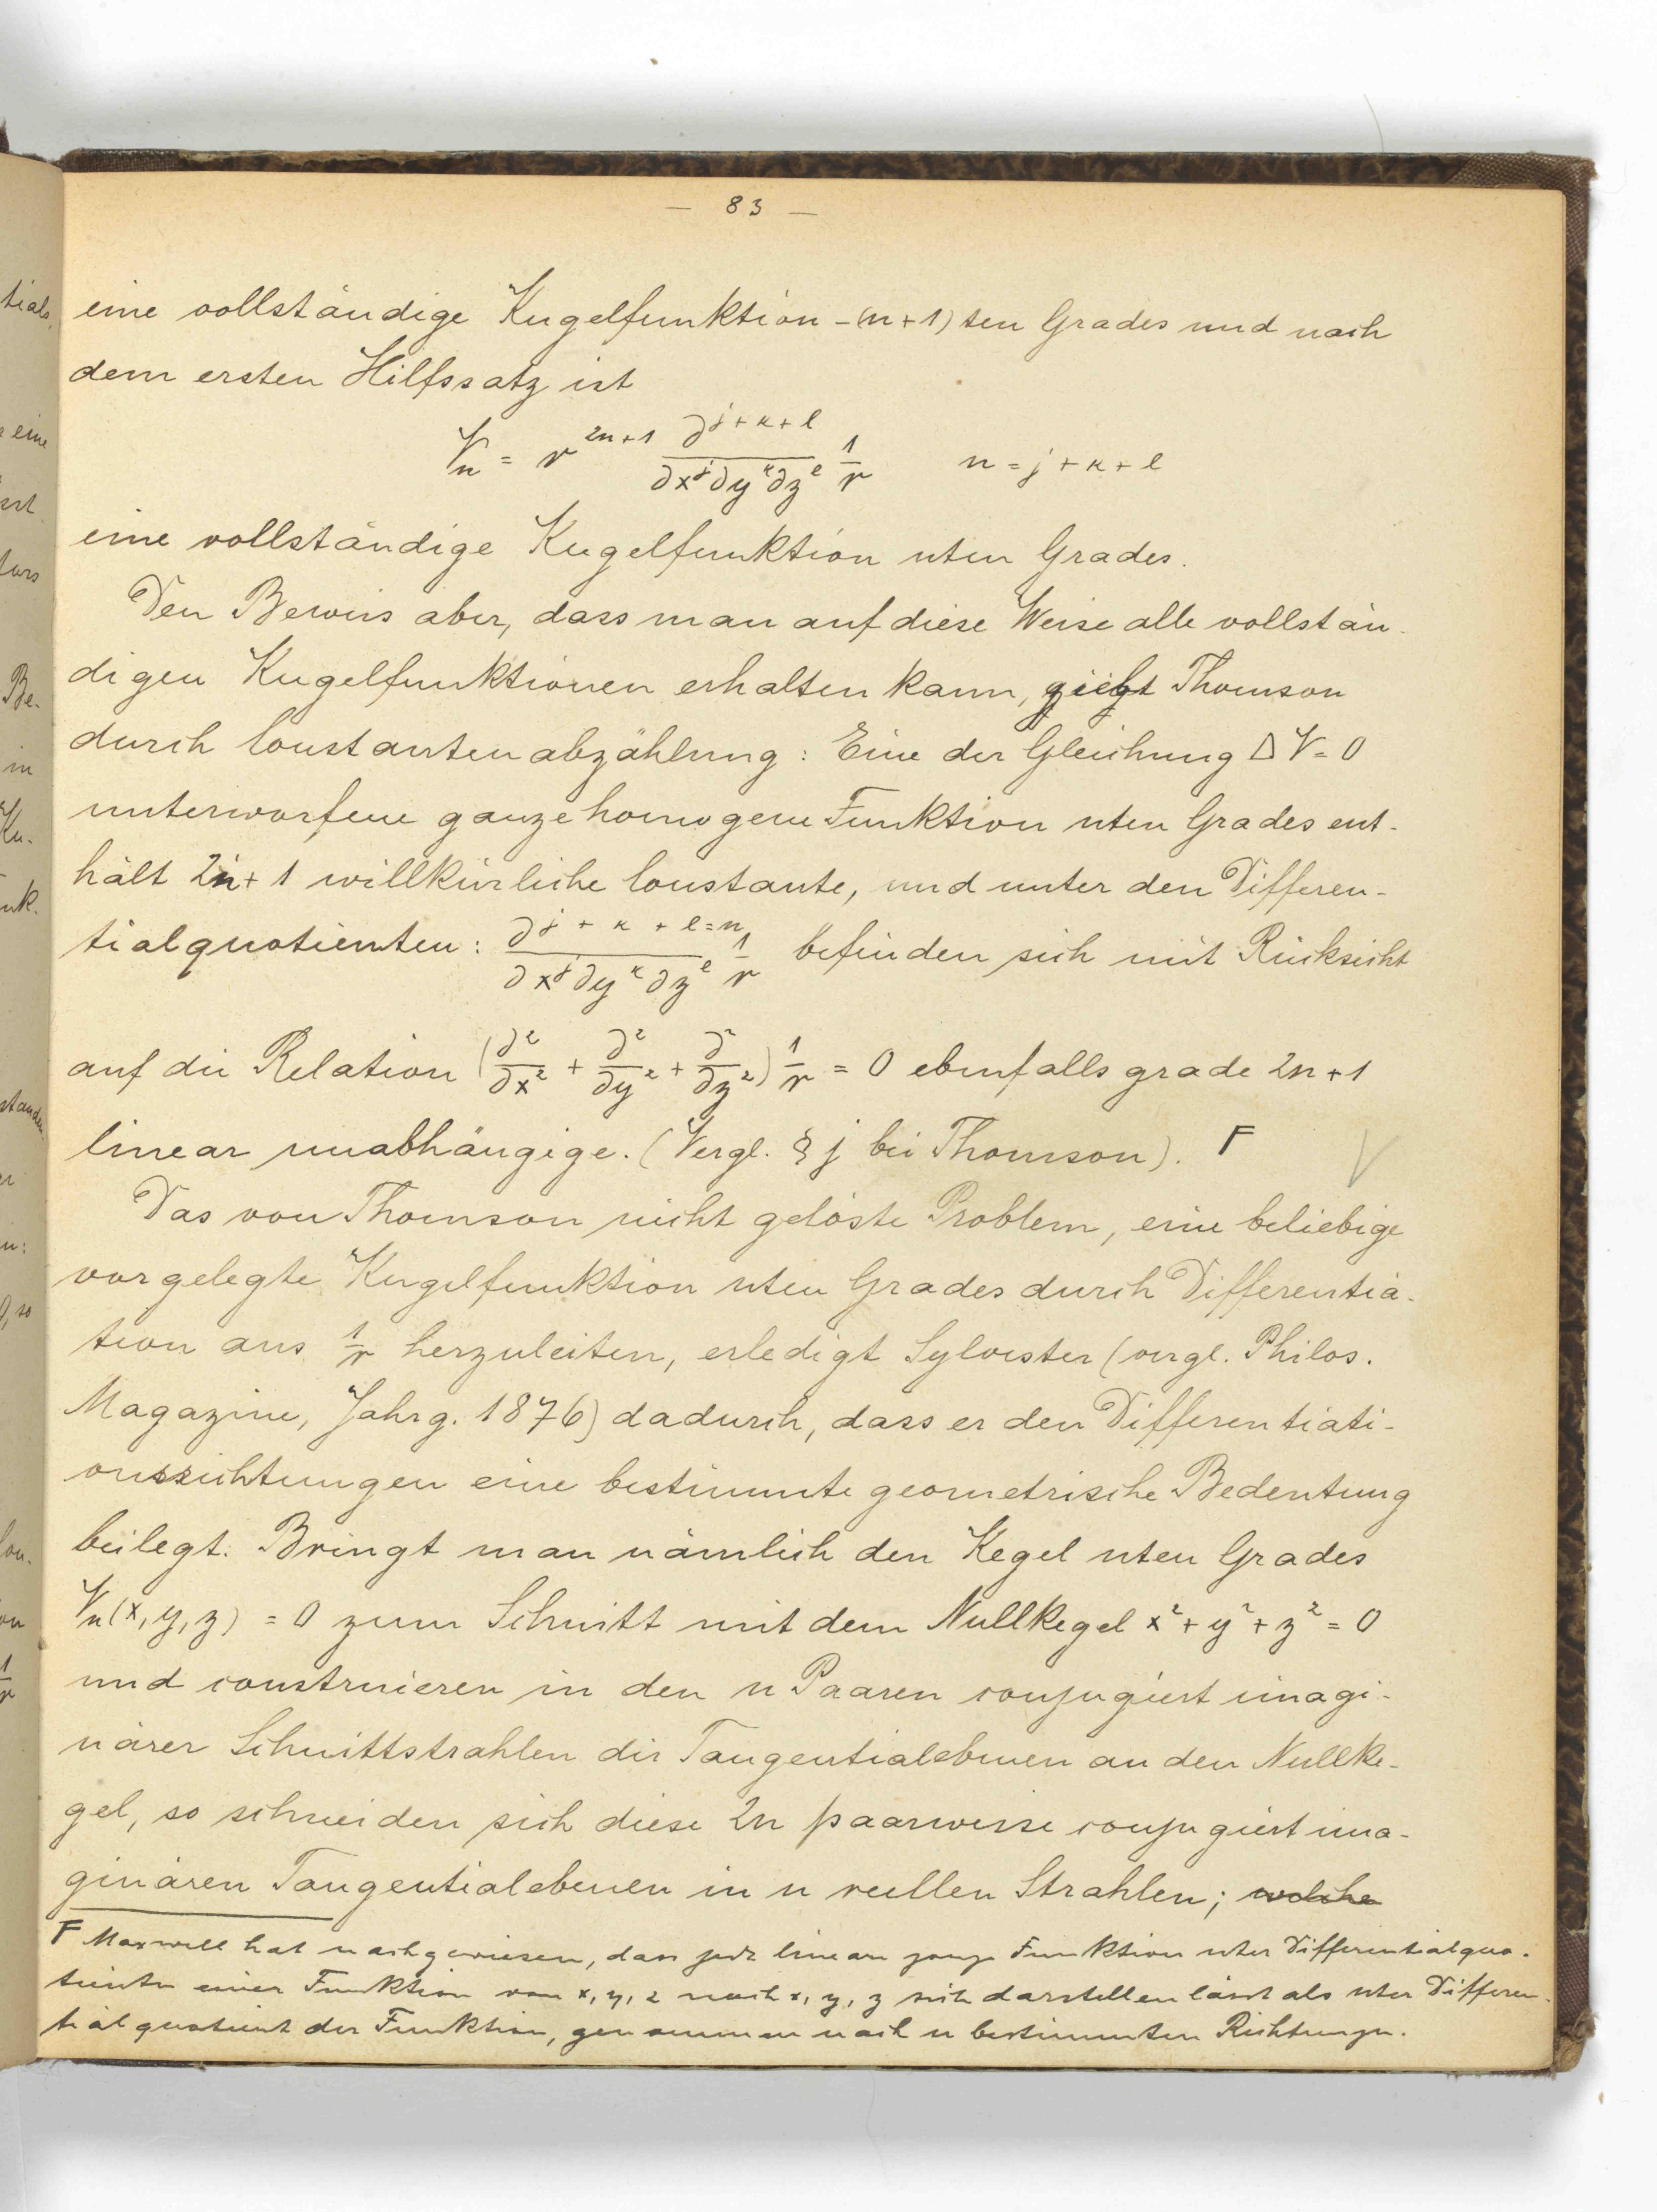 — 83 —
eine vollständige Kugelfunktion -(n+1)ten Grades und nach
dem ersten Hilfssatz ist
Vₙ = r^{2n+1} ∂^{j+κ+l}/(∂x^j ∂y^κ ∂z^l) 1/r   n = j+κ+l
eine vollständige Kugelfunktion nten Grades.
Den Beweis aber, dass man auf diese Weise alle vollstän-
digen Kugelfunktionen erhalten kann, giebt Thomson
durch Constantenabzählung: Eine der Gleichung Δ V = 0
unterworfene ganze homogene Funktion nten Grades ent-
hält 2n+1 willkürliche Constante, und unter den Differen-
tialquotienten: ∂^{j+κ+l=n}/(∂x^j ∂y^κ ∂z^l) 1/r befinden sich mit Rücksicht
auf die Relation (∂²/∂x² + ∂²/∂y² + ∂²/∂z²) 1/r = 0 ebenfalls grade 2n+1
linear unabhängige. (Vergl. § j bei Thomson). F
Das von Thomson nicht gelöste Problem, eine beliebige
vorgelegte Kugelfunktion nten Grades durch Differentia-
tion aus 1/r herzuleiten, erledigt Sylvester (vergl. Philos.
Magazine, Jahrg. 1876) dadurch, dass er den Differentiati-
onsrichtungen eine bestimmte geometrische Bedeutung
beilegt. Bringt man nämlich den Kegel nten Grades
Vₙ(x, y, z) = 0 zum Schnitt mit dem Nullkegel x² + y² + z² = 0
und construieren in den n Paaren conjugiert imagi-
närer Schnittstrahlen die Tangentialebenen an den Nullke-
gel, so schneiden sich diese 2n paarweise conjugiert ima-
ginären Tangentialebenen in n reellen Strahlen; welche
F Maxwell hat nachgewiesen, dass jede linear ganze Funktion nter Differentialquo-
tienten einer Funktion von x, y, z nach x, y, z sich darstellen lässt als nter Differen-
tialquotient der Funktion, genommen nach n bestimmten Richtungen.